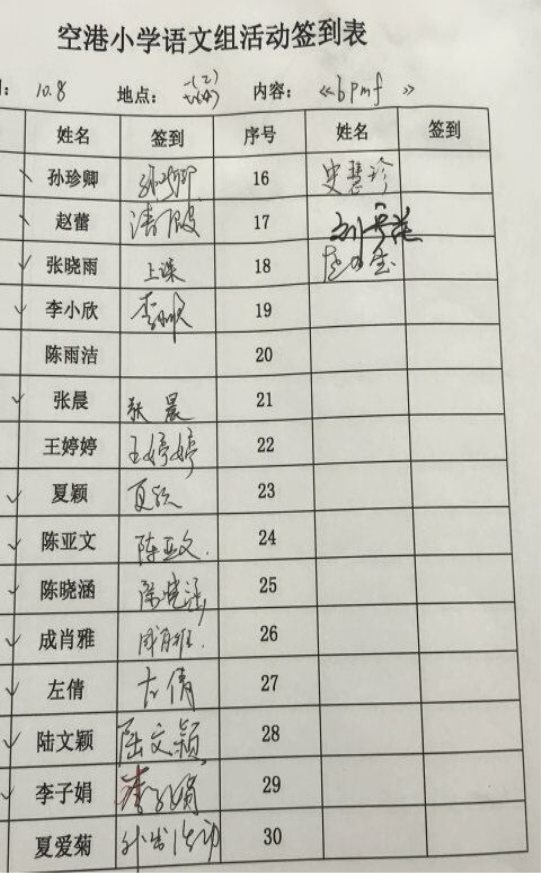 空港小学语文组活动签到表
: 10.8 地点： 一(2) 内容： 《b p m f》
姓名 签到 序号 姓名 签到
孙珍卿 孙珍卿 16 史慧珍
赵蕾 请假 17
张晓雨 上课 18
李小欣 李小欣 19
陈雨洁 20
张晨 张晨 21
王婷婷 王婷婷 22
夏颖 夏颖 23
陈亚文 陈亚文. 24
陈晓涵 陈晓涵 25
成肖雅 成肖雅. 26
左倩 左倩 27
陆文颖 陆文颖 28
李子娟 李子娟 29
夏爱菊 外出活动 30